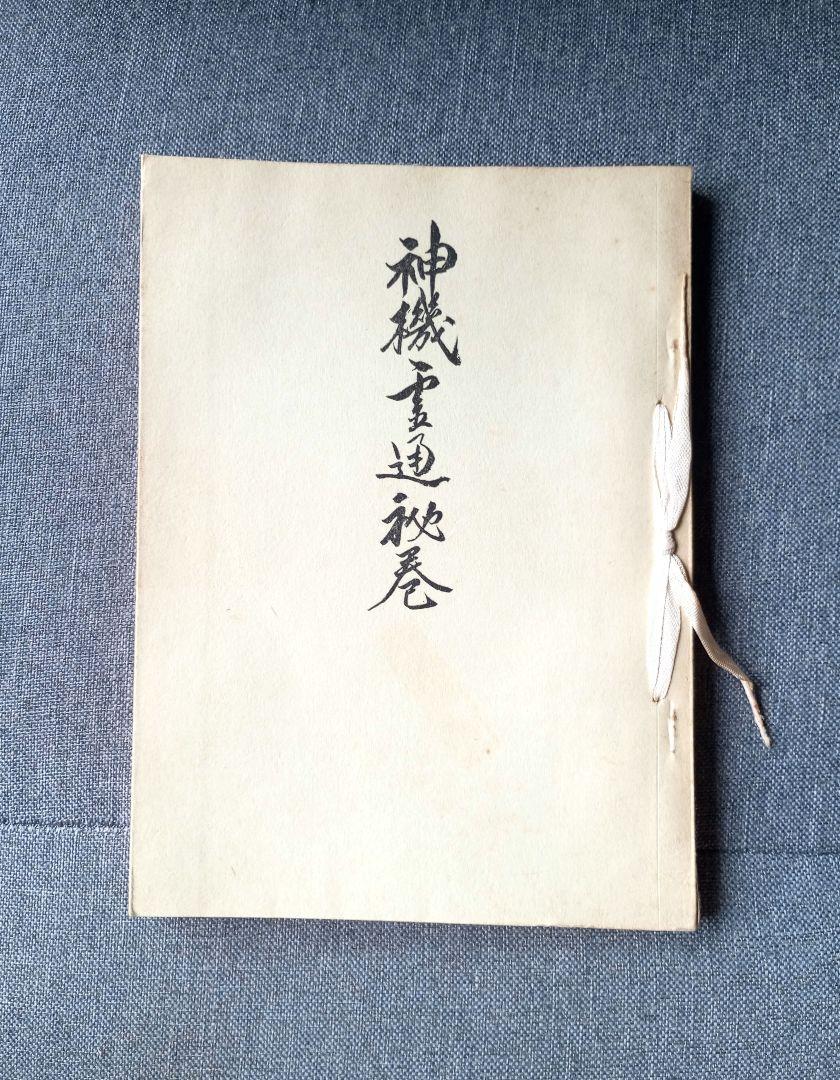 神機霊通秘巻